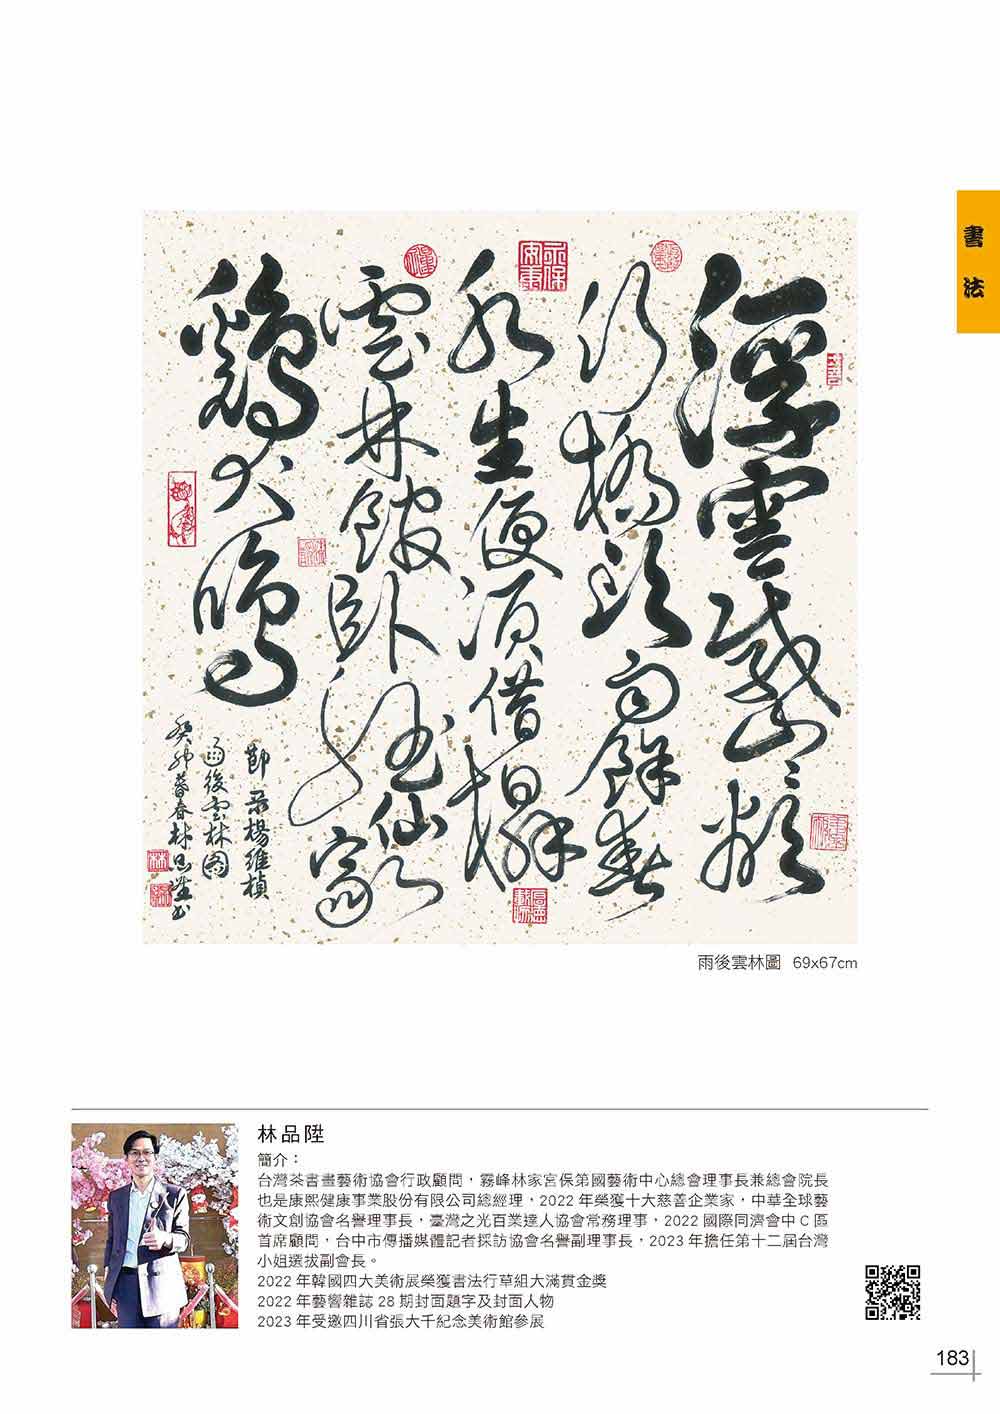 書法
浮雲載山〻欲
行橋頭雨餘春
水生便須借榻
雲林館臥聽仙家
鷄犬鳴
節录楊維楨
雨後雲林図
癸卯暮春林品陞书
雨後雲林圖 69x67cm
林品陞
簡介：
台灣茶書畫藝術協會行政顧問，霧峰林家宮保第國藝術中心總會理事長兼總會院長
也是康熙健康事業股份有限公司總經理，2022 年榮獲十大慈善企業家，中華全球藝
術文創協會名譽理事長，臺灣之光百業達人協會常務理事，2022 國際同濟會中 C 區
首席顧問，台中市傳播媒體記者採訪協會名譽副理事長，2023 年擔任第十二屆台灣
小姐選拔副會長。
2022 年韓國四大美術展榮獲書法行草組大滿貫金獎
2022 年藝響雜誌 28 期封面題字及封面人物
2023 年受邀四川省張大千紀念美術館參展
183